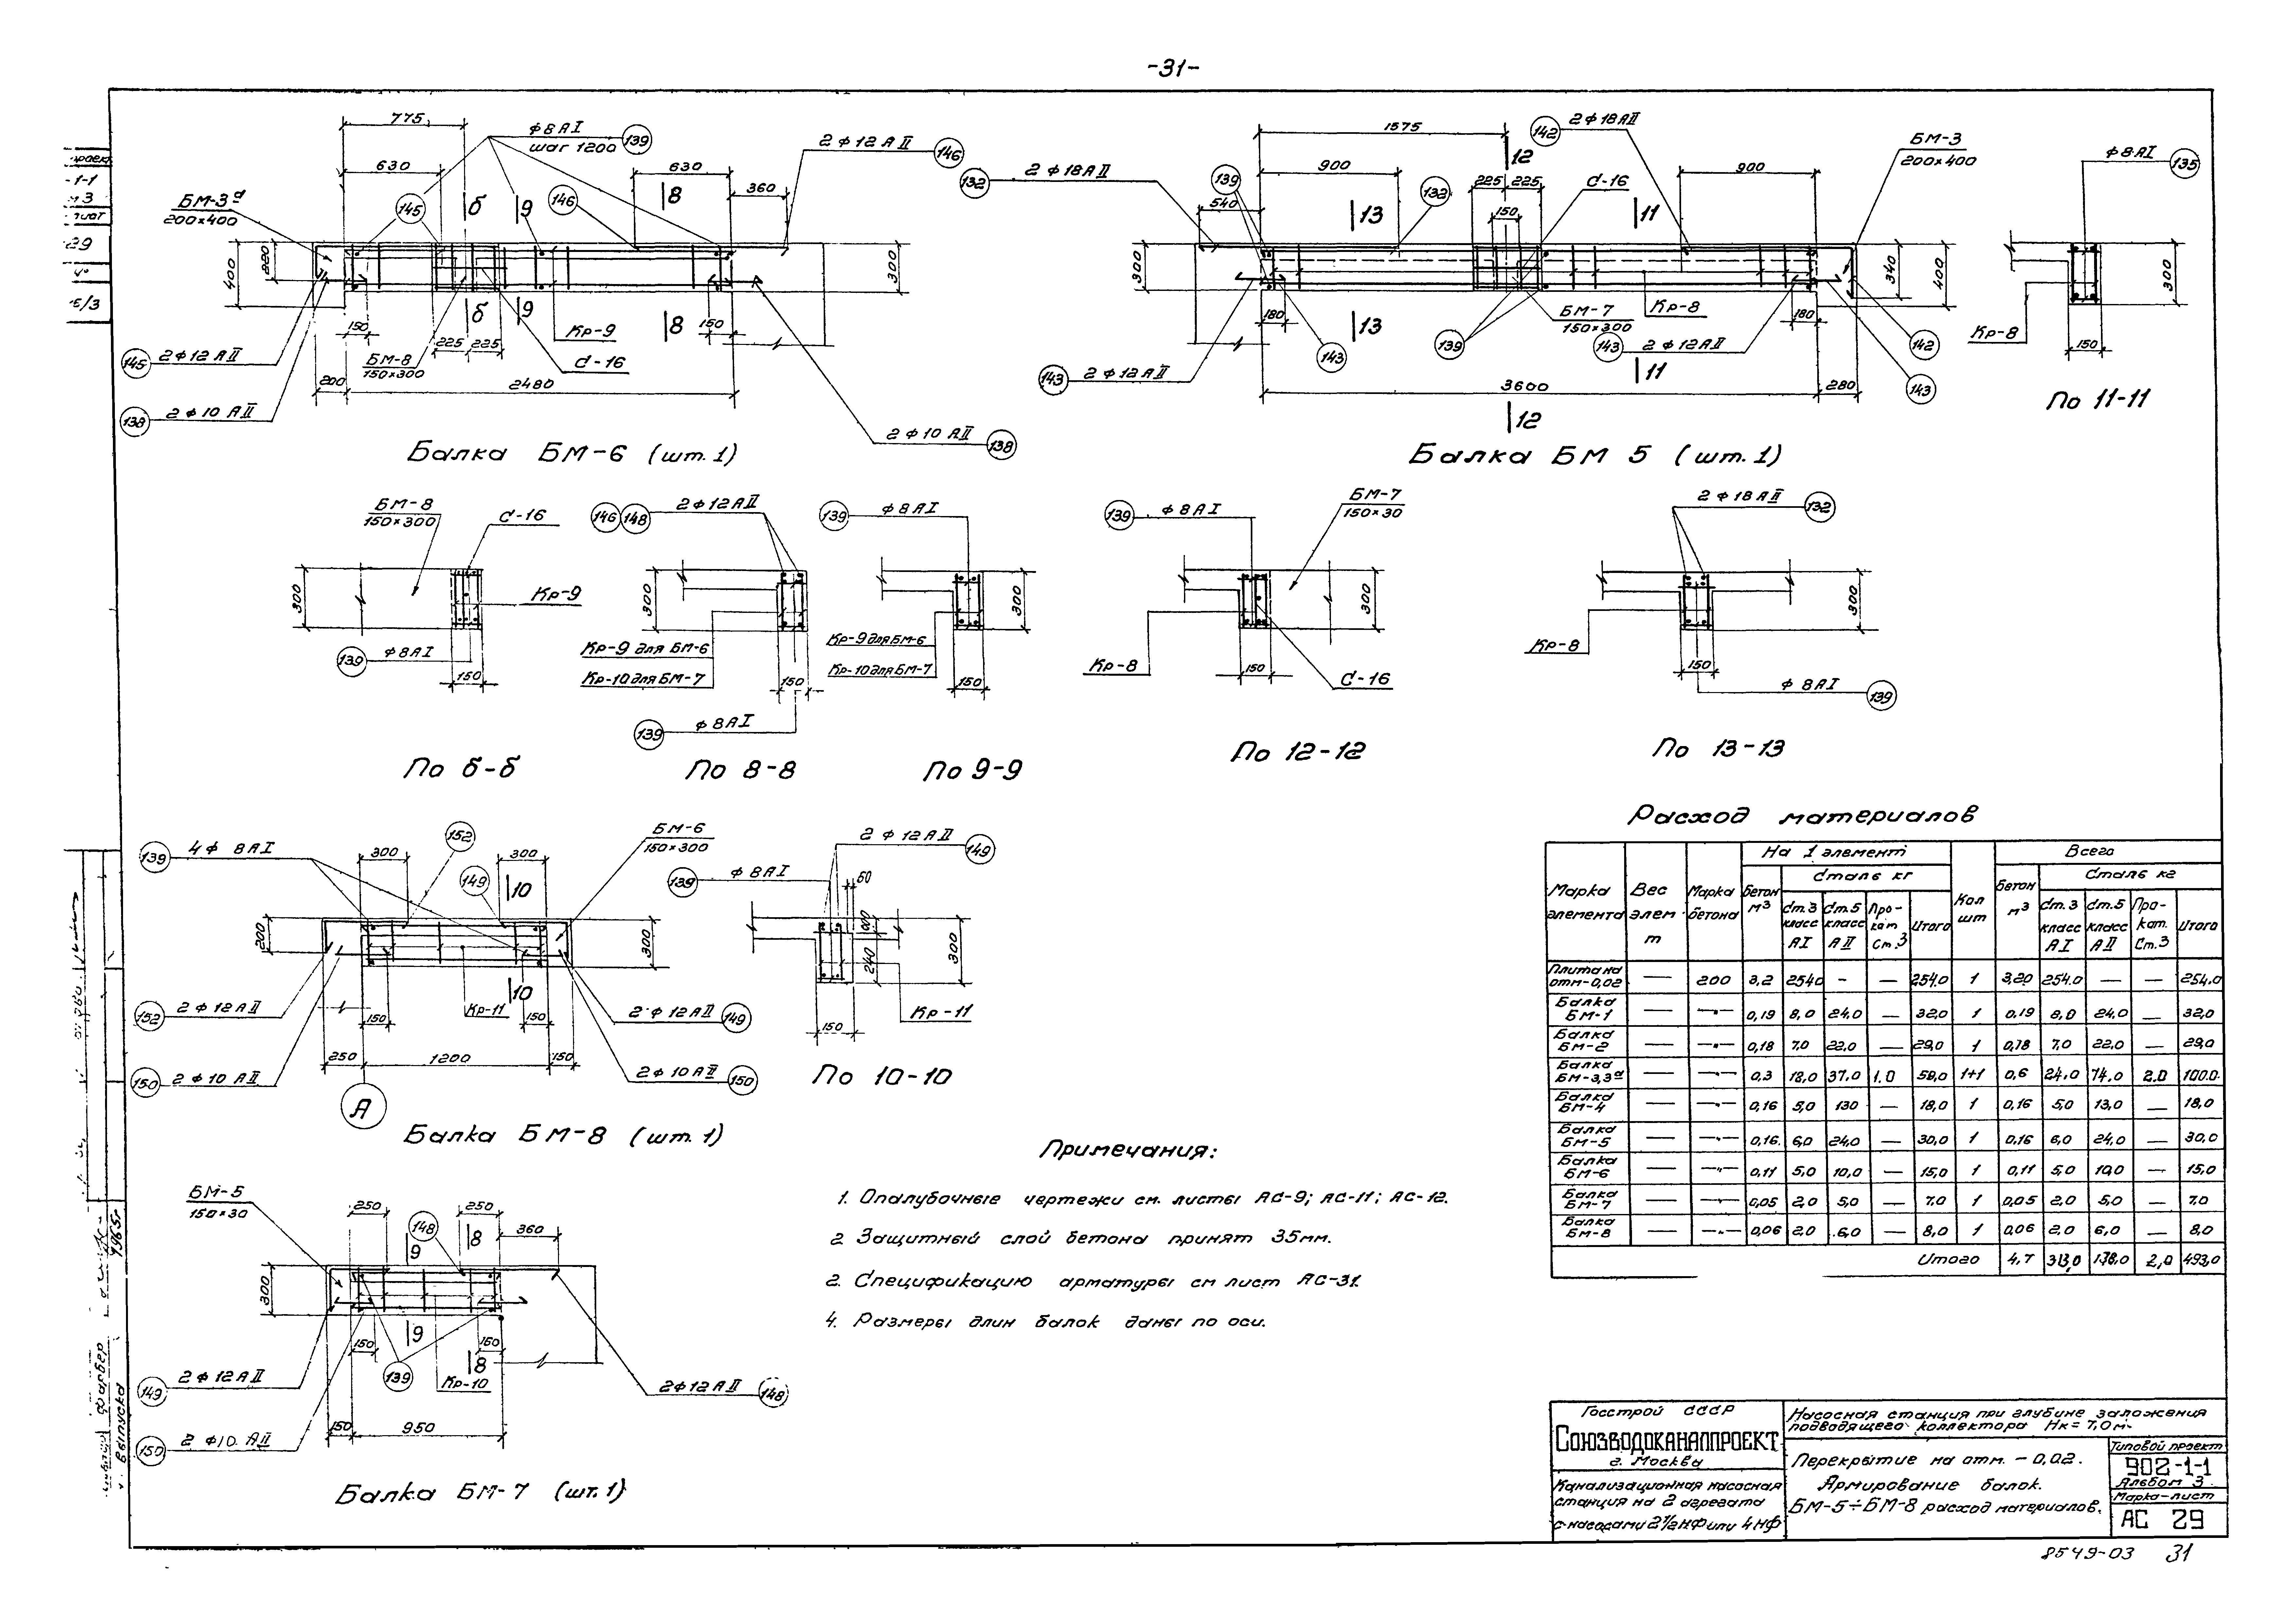 -31-
775
Ф8АI
шаг 1200
139
2Ф12АII
146
630
630
360
БМ-3а
200×400
145
б
9
146
8
400
220
300
150
225
225
150
Кр-9
С-16
БМ-8
150×300
б
9
8
145
2Ф12АII
200
2480
138
2Ф10АII
2Ф10АII
138
Балка БМ-6 (шт.1)
1575
142
2Ф18АII
12
БМ-3
200×400
132
2Ф18АII
139
900
132
225
225
С-16
900
540
13
150
11
300
340
400
180
13
143
139
БМ-7
150×300
Кр-8
180
143
2Ф12АII
142
143
2Ф12АII
11
143
3600
280
12
Балка БМ 5 (шт.1)
Ф8АI
135
300
Кр-8
150
По 11-11
БМ-8
150×300
С-16
300
Кр-9
139
Ф8АI
150
По б-б
146
148
2Ф12АII
300
Кр-9 для БМ-6
Кр-10 для БМ-7
150
139
Ф8АI
По 8-8
139
Ф8АI
300
Кр-9 для БМ-6
Кр-10 для БМ-7
150
По 9-9
139
Ф8АI
БМ-7
150×30
300
Кр-8
150
С-16
По 12-12
2Ф18АII
132
300
Кр-8
150
Ф8АI
139
По 13-13
139
4Ф 8АI
152
БМ-6
150×300
300
300
149
10
200
300
10
152
2Ф12АII
150
Кр-11
150
2Ф12АII
149
250
1200
150
150
2Ф10АII
2Ф10АII
150
А
Балка БМ-8 (шт.1)
2Ф12АII
149
139
Ф8АI
60
240
300
Кр-11
150
По 10-10
БМ-5
150×30
250
250
148
9
8
360
300
150
9
150
8
139
Кр-10
149
2Ф12АII
2Ф12АII
148
150
950
150
2Ф10АII
Балка БМ-7 (шт.1)
Примечания:
1. Опалубочные чертежи см. листы АС-9; АС-11; АС-12.
2 Защитный слой бетона принят 35мм.
2. Спецификацию арматуры см лист АС-31.
4. Размеры длин балок даны по оси.
Расход материалов
Марка элемента Вес элем. т Марка бетона На 1 элемент Кол шт Всего
Бетон м³ Сталь кг Бетон м³ Сталь кг
Ст.3 класс АI Ст.5 класс АII Про-кат Ст.3 Итого Ст.3 класс АI Ст.5 класс АII Про-кат. Ст.3 Итого
Плита на отм-0,02 — 200 3,2 2540 - — 254.0 1 3,20 254.0 — — 254.0
Балка БМ-1 — —"— 0,19 8,0 24,0 — 32,0 1 0,19 8,0 24,0 — 32,0
Балка БМ-2 — —"— 0,18 7,0 22,0 — 29,0 1 0,18 7,0 22,0 — 29,0
Балка БМ-3,3а — —"— 0,3 12,0 37.0 1.0 50,0 1+1 0,6 24.0 74.0 2.0 100.0
Балка БМ-4 — —"— 0,16 5,0 130 — 18,0 1 0,16 5,0 13,0 — 18,0
Балка БМ-5 — —"— 0,16 6,0 24,0 — 30,0 1 0,16 6,0 24,0 — 30,0
Балка БМ-6 — —"— 0,11 5,0 10,0 — 15,0 1 0,11 5,0 10,0 — 15,0
Балка БМ-7 — —"— 0,05 2,0 5,0 — 7.0 1 0,05 2,0 5,0 — 7.0
Балка БМ-8 — —"— 0,06 2,0 6,0 — 8,0 1 0,06 2,0 6,0 — 8,0
Итого 4,7 313,0 178,0 2,0 493,0
Госстрой СССР
СОЮЗВОДОКАНАЛПРОЕКТ
г. Москва
Канализационная насосная
станция на 2 агрегата
с насосами 2½НФ или 4НФ
Насосная станция при глубине заложения
подводящего коллектора Нк=7,0м.
Перекрытие на отм. -0,02.
Армирование балок.
БМ-5÷БМ-8 расход материалов.
Типовой проект
902-1-1
Альбом 3
Марка-лист
АС 29
8549-03 31
1965г
Фарбер
выпуска